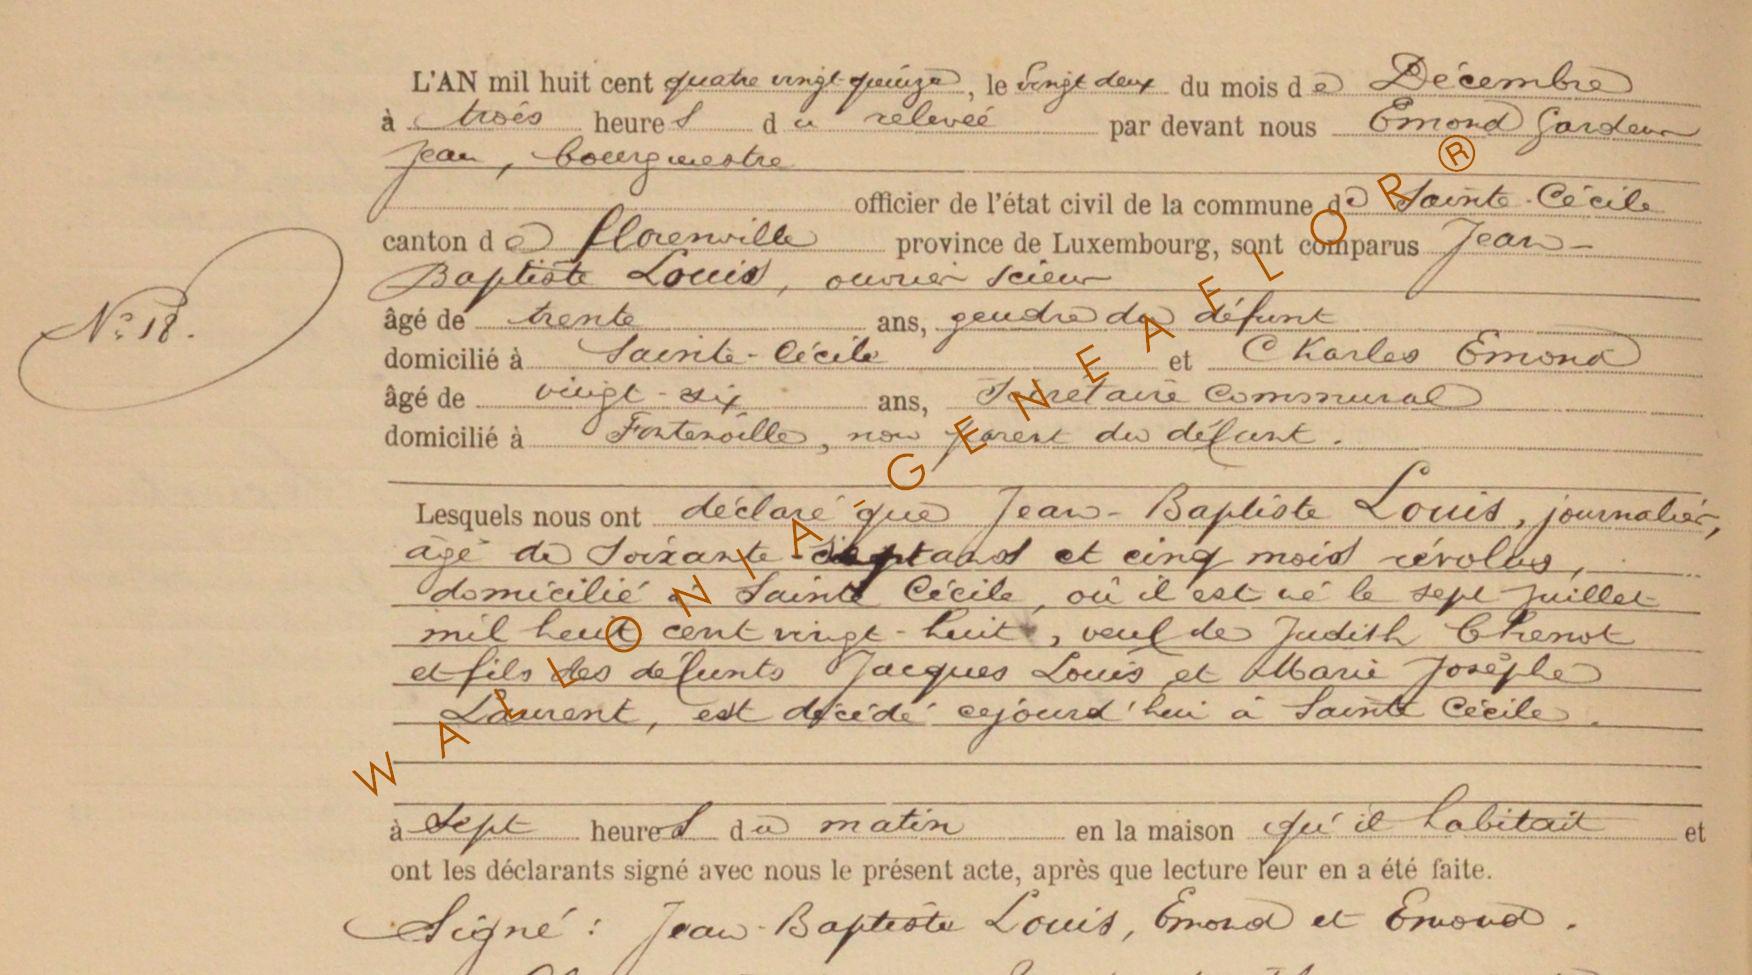 L'AN mil huit cent quatre vingt-quinze, le vingt deux du mois de Décembre
à trois heures du relevée par devant nous Emond Gardeur
Jean, bourgmestre
officier de l'état civil de la commune de Sainte-Cécile
canton de Florenville province de Luxembourg, sont comparus Jean-
Baptiste Louis, ouvrier scieur
âgé de trente ans, gendre du défunt
N° 18.
domicilié à Sainte-Cécile et Charles Emond
âgé de vingt-six ans, Secrétaire communal
domicilié à Fontenoille, non parent du défunt.
Lesquels nous ont déclaré que Jean-Baptiste Louis, journalier,
âgé de Soixante-sept ans et cinq mois révolus,
domicilié à Sainte Cécile, où il est né le sept Juillet
mil huit cent vingt-huit, veuf de Judith Chenot
et fils des défunts Jacques Louis et Marie Josèphe
Laurent, est décédé cejourd'hui à Sainte Cécile.
à Sept heures du matin en la maison qu'il habitait et
ont les déclarants signé avec nous le présent acte, après que lecture leur en a été faite.
Signé : Jean-Baptiste Louis, Emond et Emond.
WALLONIA-GENEAFLOR®